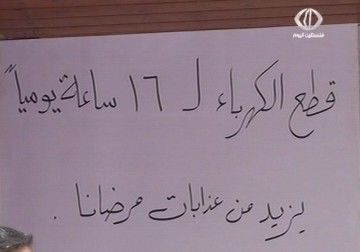 فلسطين اليوم
قطع الكهرباء لـ ١٦ ساعة يومياً
يزيد من عذابات مرضانا .